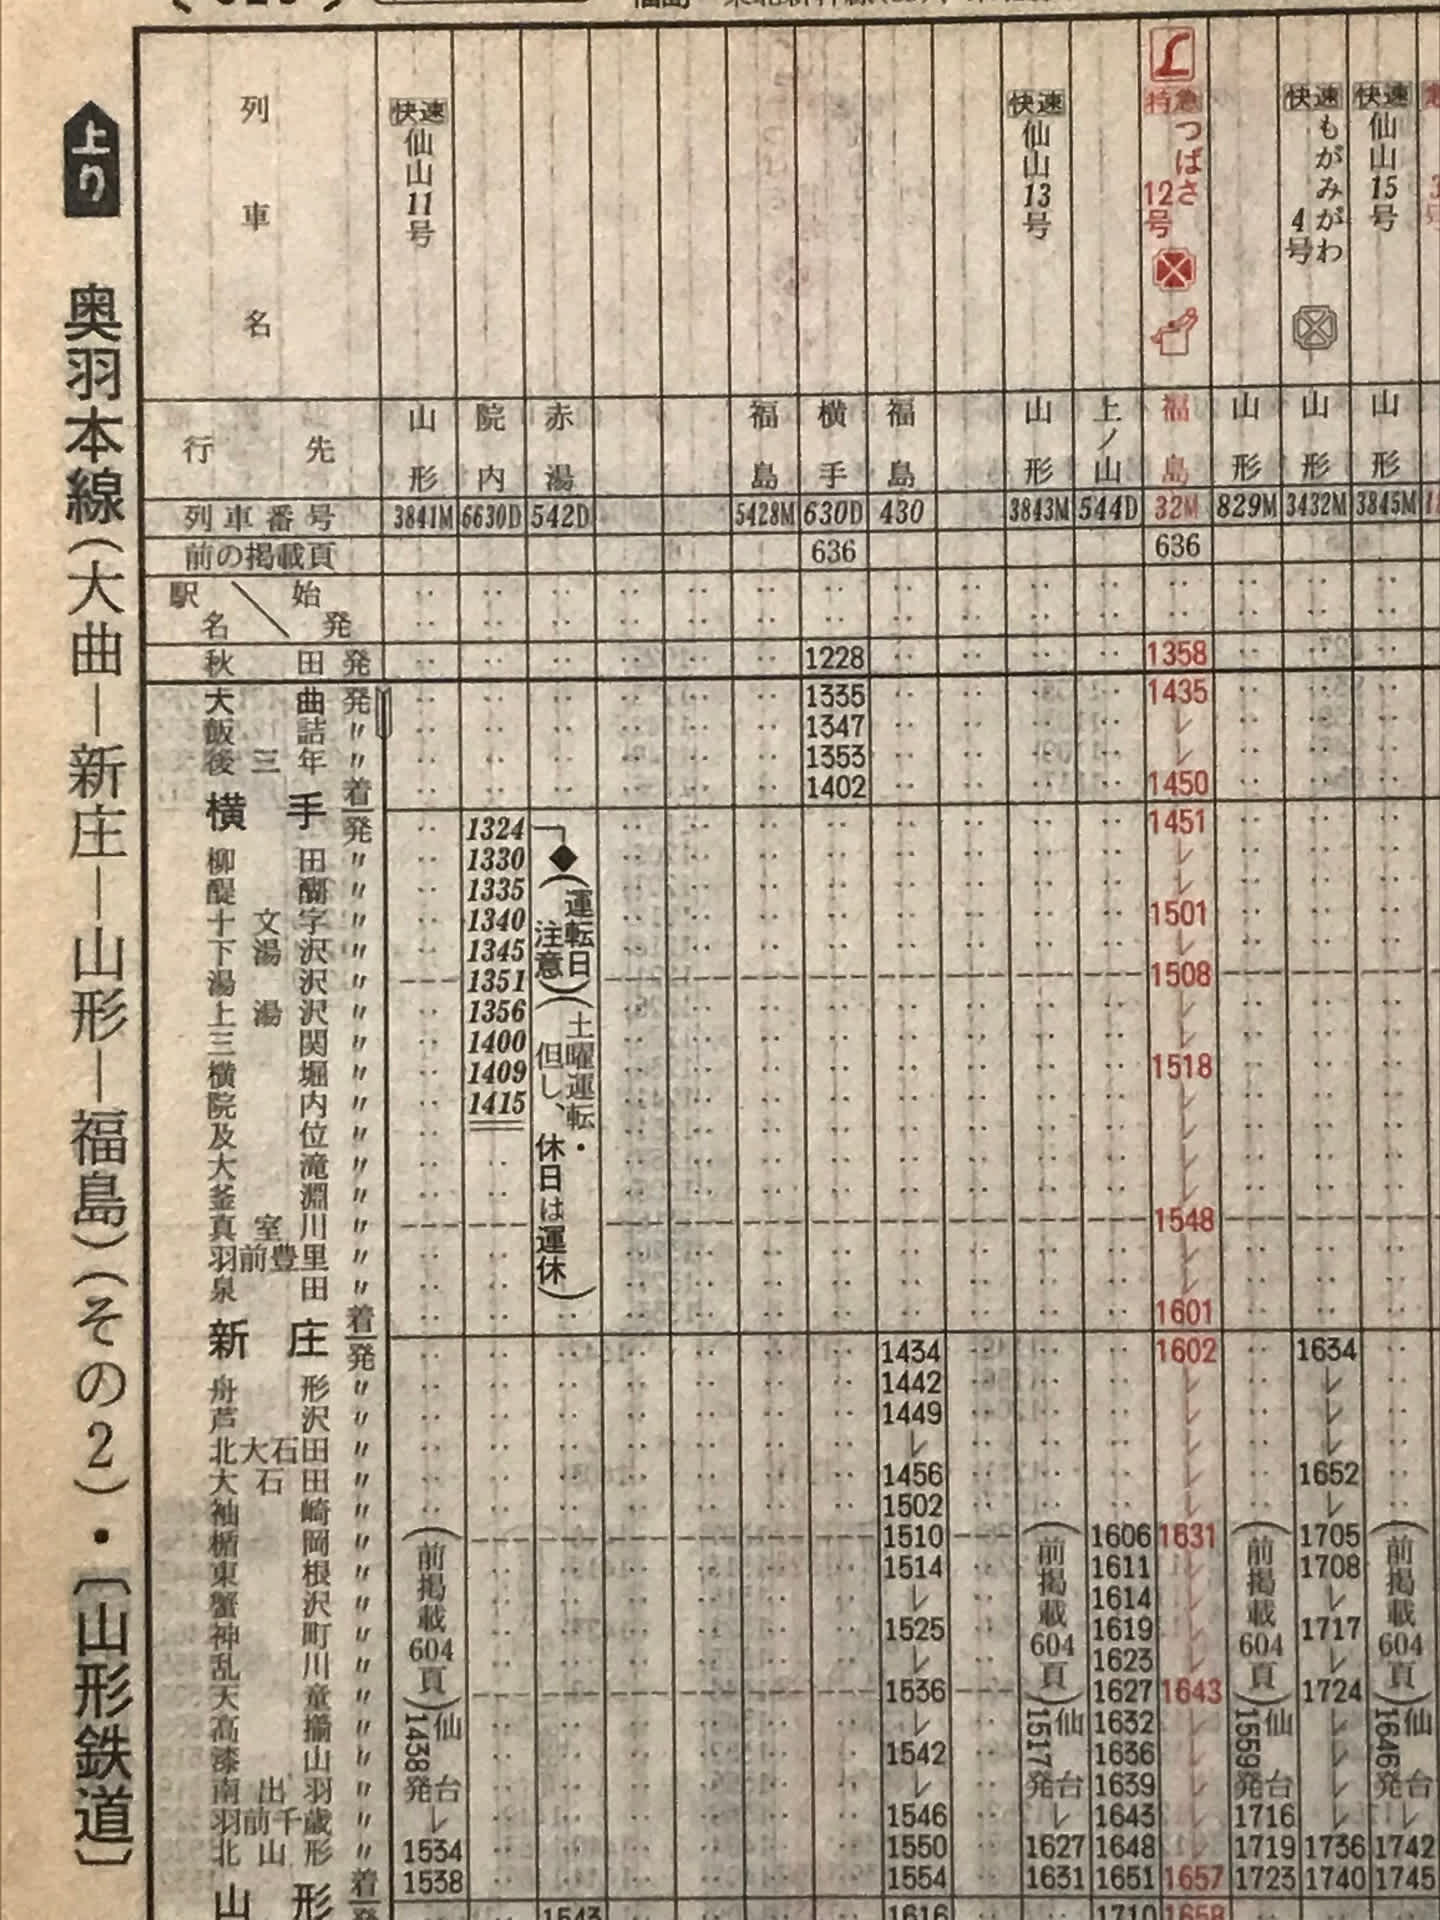 上り 奥羽本線（大曲―新庄―山形―福島）（その2）・〔山形鉄道〕
列車名 快速 仙山11号 快速 仙山13号 L 特急 つばさ12号 快速 もがみがわ4号 快速 仙山15号
行先 山形 院内 赤湯 福島 横手 福島 山形 上ノ山 福島 山形 山形 山形
列車番号 3841M 6630D 542D 5428M 630D 430 3843M 544D 32M 829M 3432M 3845M
前の掲載頁 636 636
駅名＼始発
秋田 発 ‥ ‥ ‥ ‥ ‥ ‥ 1228 ‥ ‥ ‥ ‥ 1358 ‥ ‥ ‥
大曲 発 1335 1435
飯詰 〃 1347 レ
後三年 〃 1353 レ
横手 着 1402 1450
発 1324 1451
柳田 〃 1330 レ
醍醐 〃 1335 レ
十文字 〃 1340 1501
下湯沢 〃 1345 レ
湯沢 〃 1351 1508
上湯沢 〃 1356 レ
三関 〃 1400 レ
横堀 〃 1409 1518
院内 〃 1415 レ
及位 〃 レ
大滝 〃 レ
釜淵 〃 レ
真室川 〃 1548
羽前豊里 〃 レ
泉田 〃 レ
◆（運転日注意）（土曜運転・但し、休日は運休）
新庄 着 1601
発 1434 1602 1634
舟形 〃 1442 レ レ
芦沢 〃 1449 レ レ
北大石田 〃 レ レ レ
大石田 〃 1456 レ 1652
袖崎 〃 1502 レ レ
楯岡 〃 1510 1606 1631 1705
東根 〃 1514 1611 レ 1708
蟹沢 〃 レ 1614 レ レ
神町 〃 1525 1619 レ 1717
乱川 〃 レ 1623 レ レ
天童 〃 1536 1627 1643 1724
高擶 〃 レ 1632 レ レ
漆山 〃 1542 1636 レ レ
南出羽 〃 レ 1639 レ レ
羽前千歳 〃 レ 1546 レ 1643 レ 1716 レ レ
北山形 〃 1534 1550 1627 1648 レ 1719 1736 1742
山形 着 1538 1554 1631 1651 1657 1723 1740 1745
発 1543 1616 1710 1658
（前掲載604頁）仙台1438発
（前掲載604頁）仙台1517発
（前掲載604頁）仙台1559発
（前掲載604頁）仙台1646発